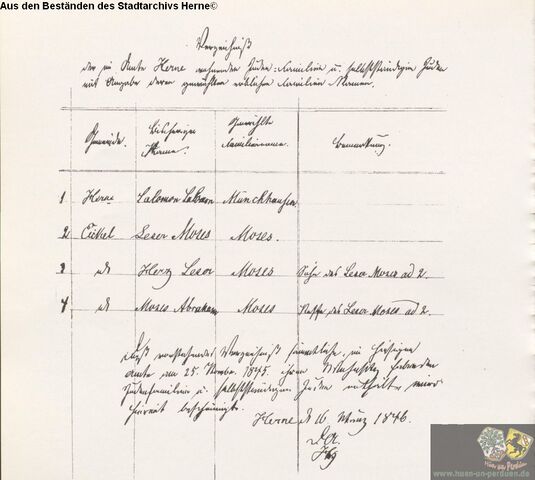 Aus den Beständen des Stadtarchivs Herne©
Verzeichniß
der im Amte Herne wohnenden Juden-Familien u. selbstständigen Juden
mit Angabe deren gewählten erblichen Familien Namen.
Gemeinde. Bisheriger Name. Gewählte Familienname. Bemerkung.
1 Herne Salomon Salomon Münchhausen
2 Eickel Leser Moses Moses.
3 id Herz Leser Moses Sohn des Leser Moses ad 2.
4 id Moses Abraham Moses Neffe des Leser Moses ad 2.
Daß vorstehendes Verzeichniß sämmtliche, im hiesigen
Amte am 25. Novbr. 1845. ihren Wohnsitz habenden
Judenfamilien u. selbstständigen Juden enthält, wird
hiermit bescheinigt.
Herne d 16 März 1846.
Der
www.huen-un-perduen.de